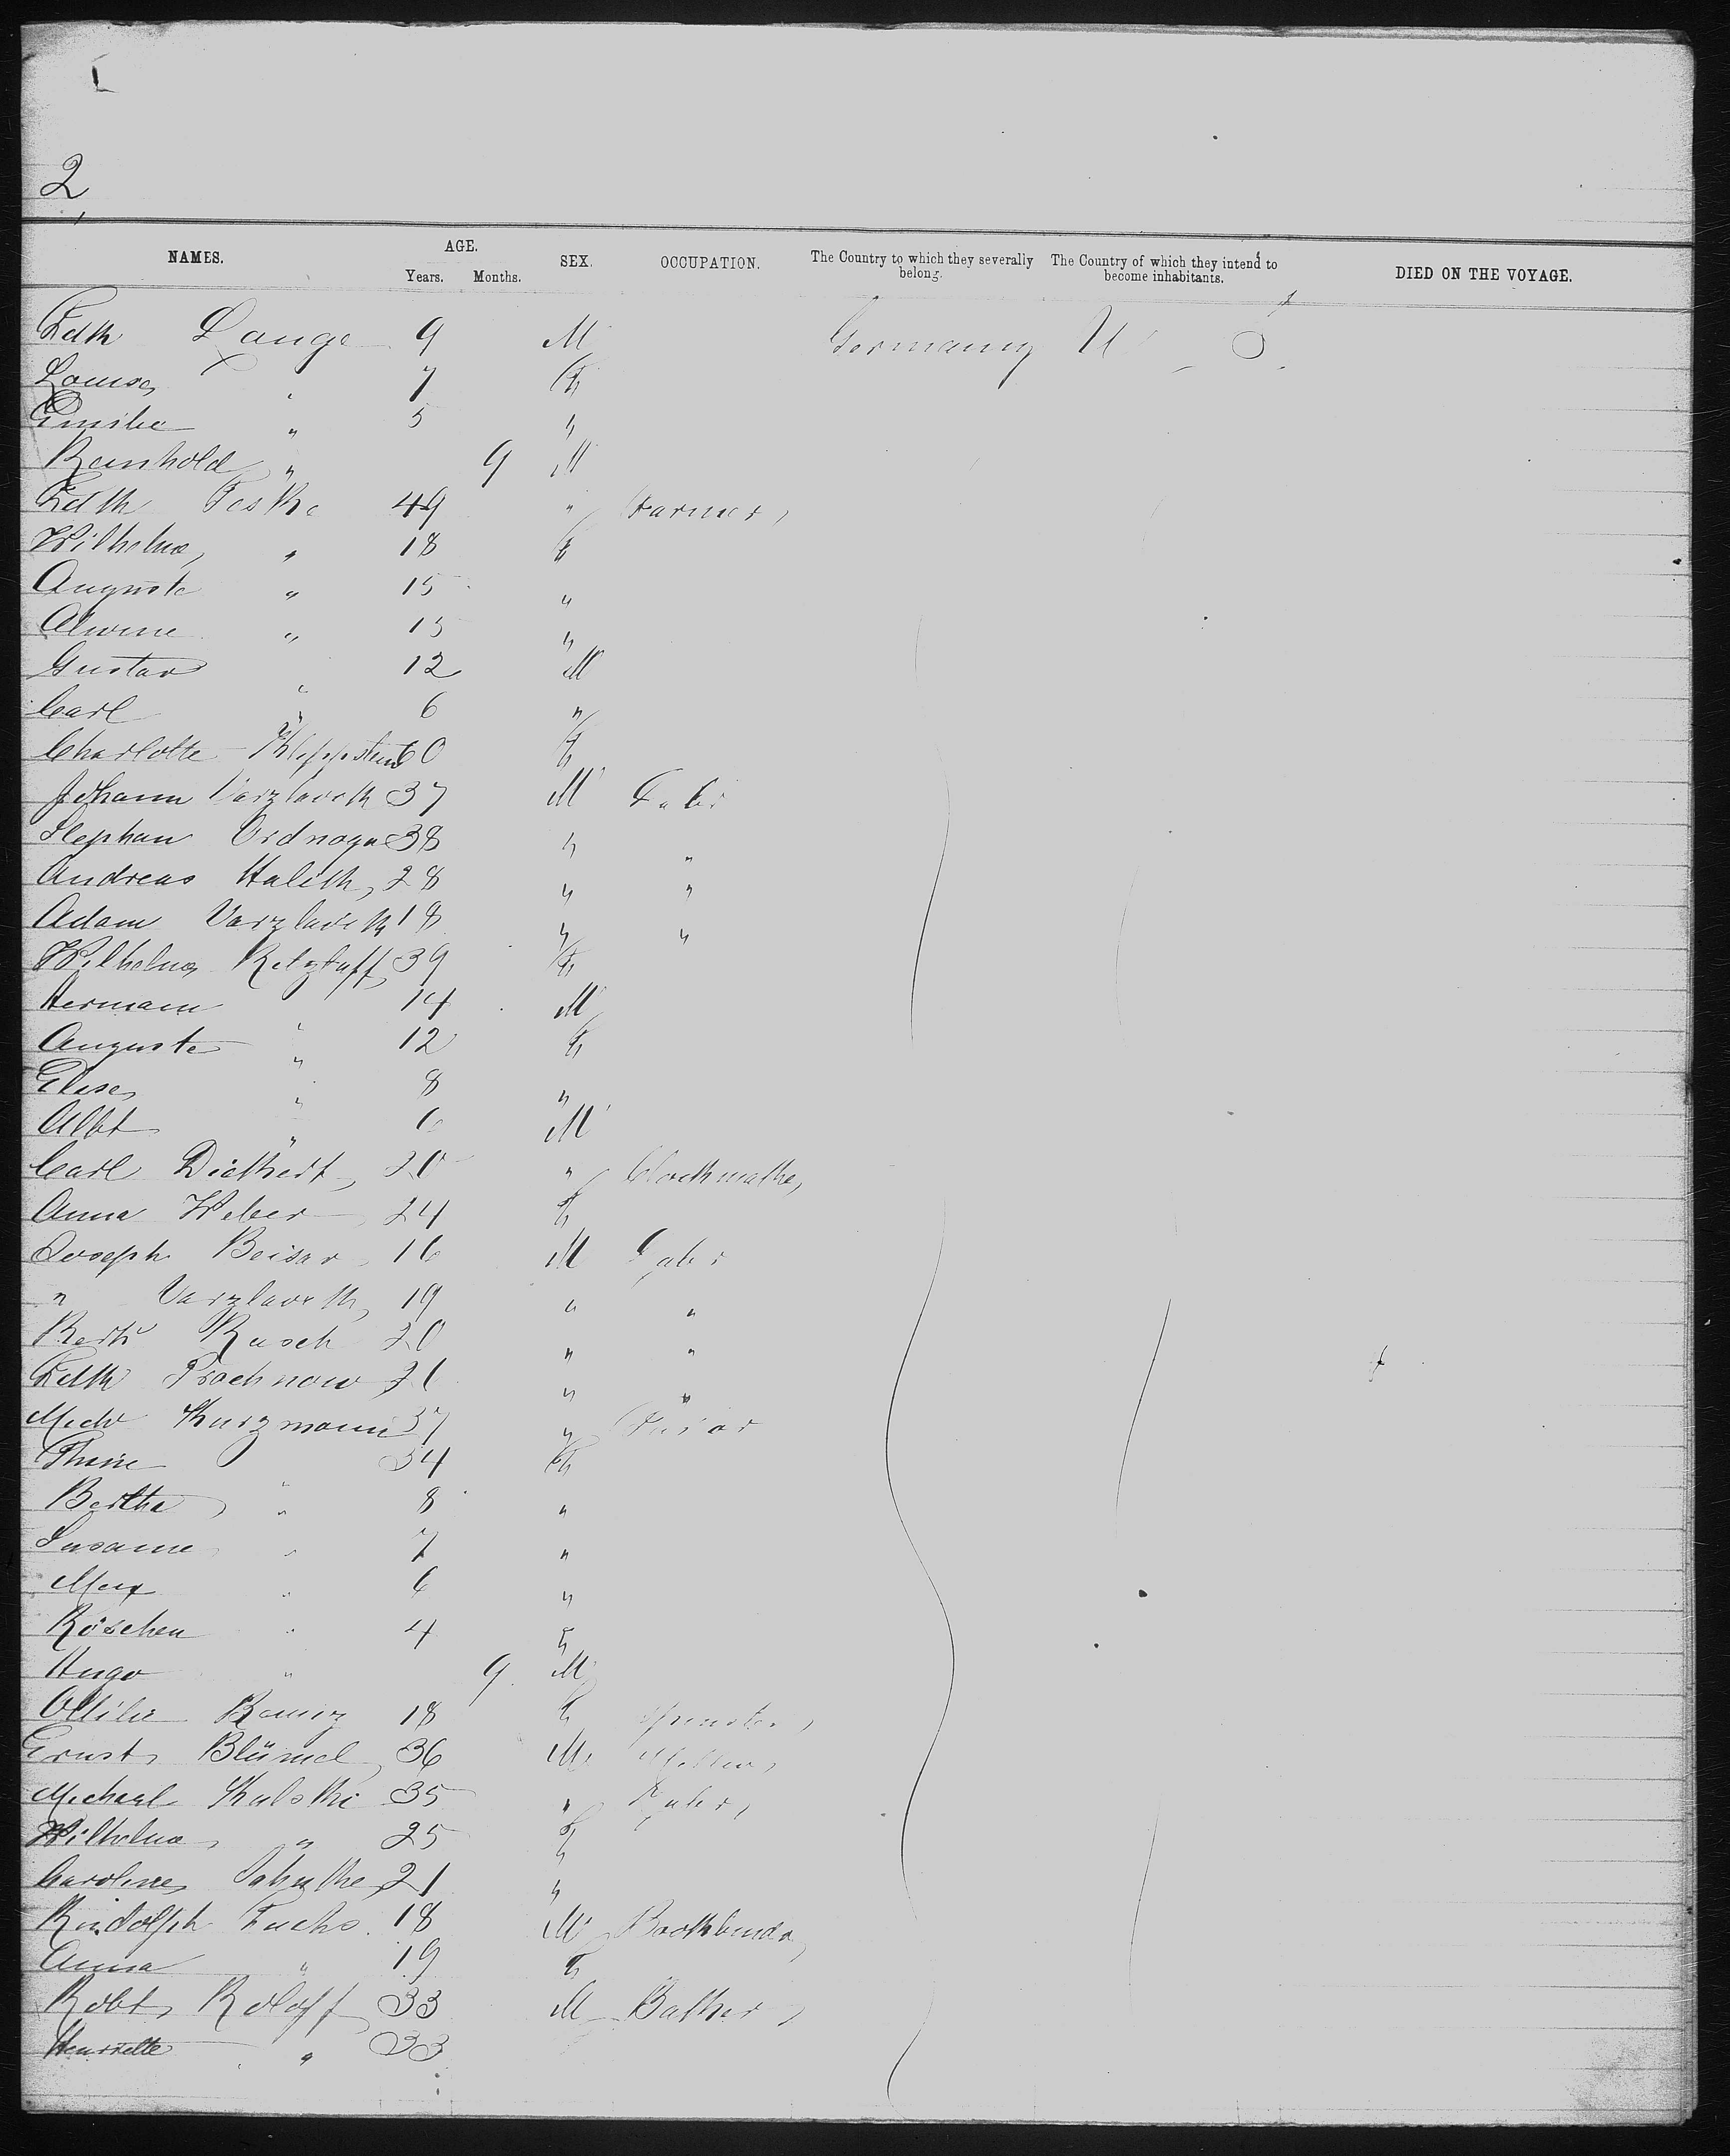 2,
NAMES. AGE. Years. Months. SEX. OCCUPATION. The Country to which they severally belong. The Country of which they intend to become inhabitants. DIED ON THE VOYAGE.
Fdk Lange 9 M Germany U S.
Louise " 7 F
Emilie " 5 "
Reinhold " 9 M
Fdk Teske 49 " Farmer,
Wilhelme, " 18 F
Auguste " 15 "
Alwine " 15 "
Gustav " 12 M
Carl " 6 "
Charlotte 60 F
Johann Varzlaveck 37 M Labr
Stephan Ordnoga 38 " "
Andreas Halek, 28 " "
Adam Varzlaveck 18 " "
Wilhelme Retzlaff 39 F
Hermann 14 M
Auguste " 12 F
Elise, " 8 "
Albt " 6 M
Carl Diekhert, 20 " Clockmake,
Anna Weber 24 F
Joseph Beisar 16 M Labr
" Varzlaveck, 19 " "
Rasch 20 " "
Fdk Prochnow 21 " "
Kurzmann 37 "
34 F
Bertha " 8 "
Susanne " 7 "
Max " 6 "
Röschen " 4 "
Hugo " 9 M
Ottilie 18 F Spinster,
Ernst Blümel, 36 M Miller,
Michael Kulski 35 " Labr,
Wilhelme " 25 F
Caroline 21 "
Rudolph Fuchs 18 M Bookbinder,
Anna " 19 F
Robt, Roloff 33 M Baker,
Henriette " 33